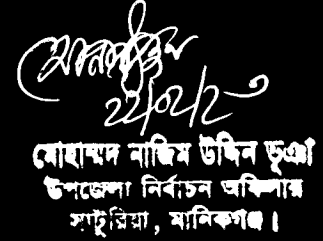 ২২/০২/২৩
মোহাম্মদ নাজিম উদ্দিন ভূঞা
উপজেলা নির্বাচন অফিসার
সাটুরিয়া, মানিকগঞ্জ।